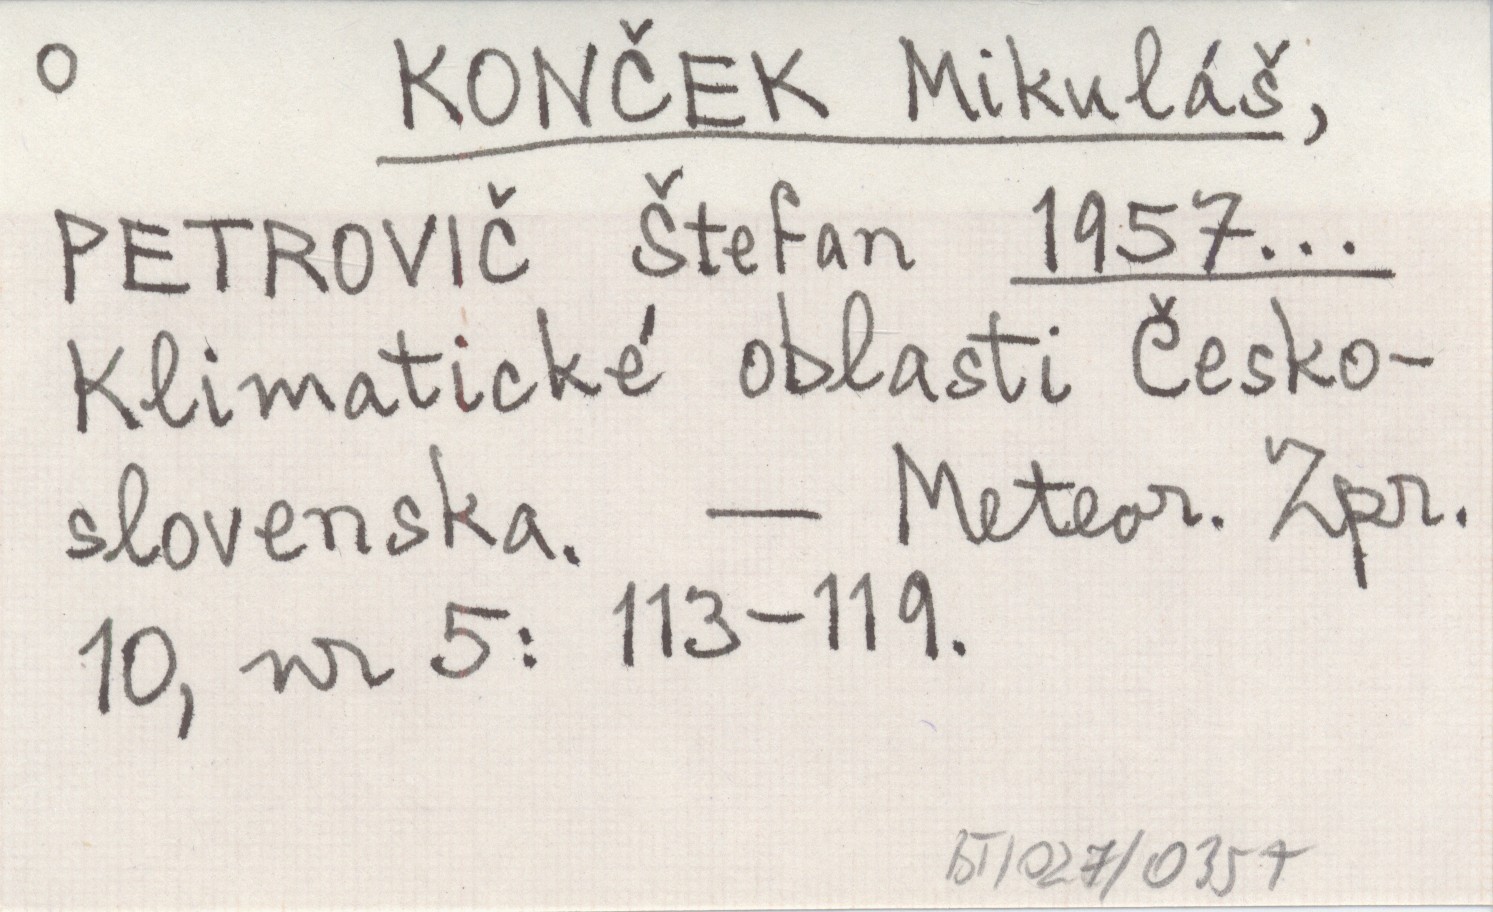 o KONČEK Mikuláš,
PETROVIČ Štefan 1957...
Klimatické oblasti Česko-
slovenska. — Meteor. Zpr.
10, nr 5: 113-119.